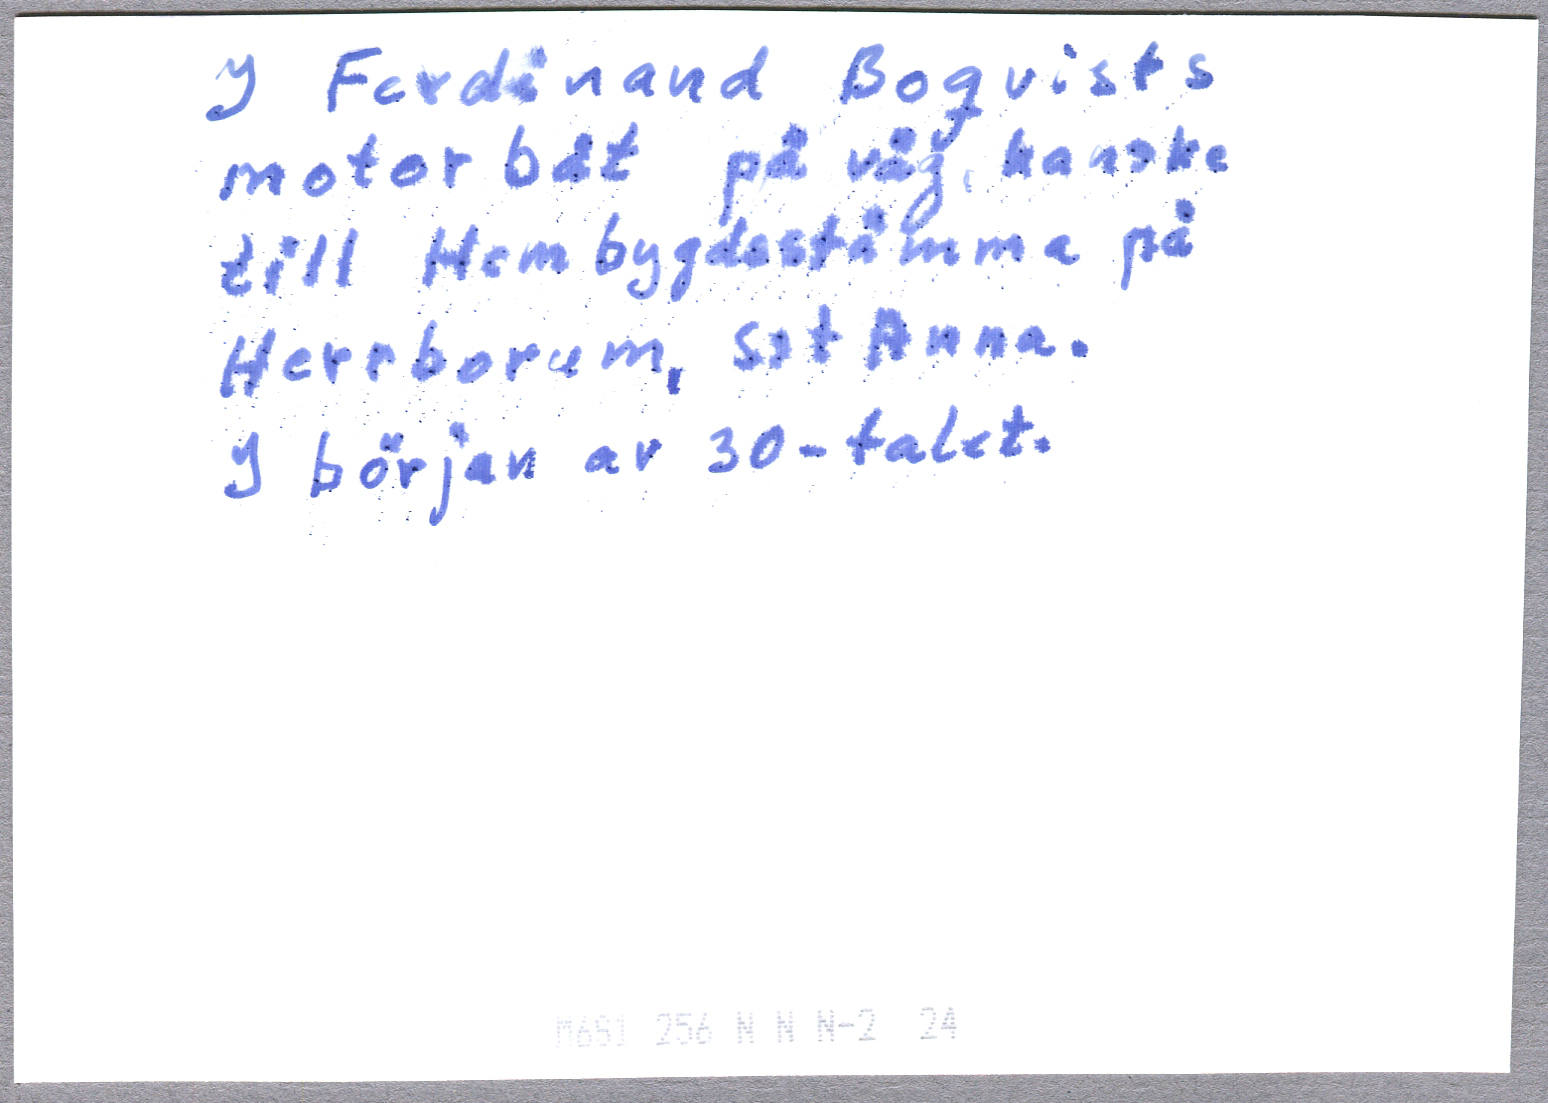 I Ferdinand Boqvists
motorbåt på väg, kanske
till Hembygdsstämma på
Herrborum, S:t Anna.
I början av 30-talet.
M6S1 256 N N N-2 24